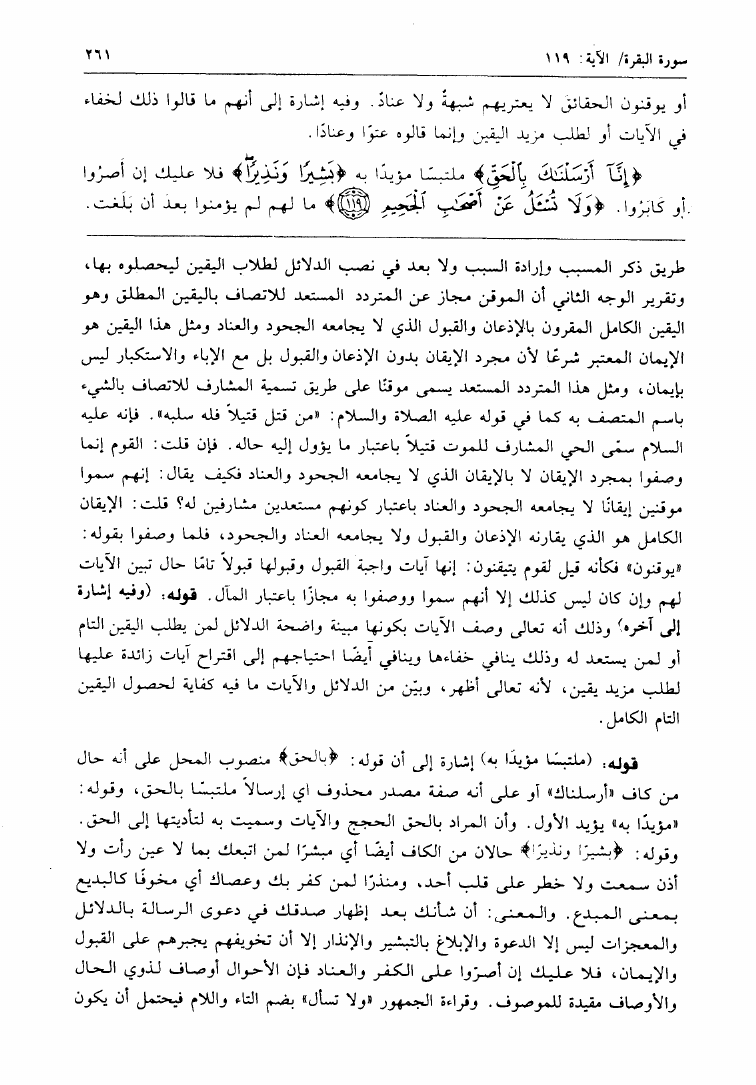 سورة البقرة/ الآية: ١١٩
٢٦١
أو يوقنون الحقائق لا يعتريهم شبهةٌ ولا عنادٌ. وفيه إشارة إلى أنهم ما قالوا ذلك لخفاء
في الآيات أو لطلب مزيد اليقين وإنما قالوه عتوًا وعنادًا.
﴿إِنَّآ أَرْسَلْنَـٰكَ بِٱلْحَقِّ﴾ ملتبسًا مؤيدًا به ﴿بَشِيرًا وَنَذِيرًا﴾ فلا عليك إن أصرّوا
أو كَابَرُوا. ﴿وَلَا تُسْـَٔلُ عَنْ أَصْحَـٰبِ ٱلْجَحِيمِ ١١٩﴾ ما لهم لم يؤمنوا بعد أن بَلَّغت.
طريق ذكر المسبب وإرادة السبب ولا بعد في نصب الدلائل لطلاب اليقين ليحصلوه بها،
وتقرير الوجه الثاني أن الموقن مجاز عن المتردد المستعد للاتصاف باليقين المطلق وهو
اليقين الكامل المقرون بالإذعان والقبول الذي لا يجامعه الجحود والعناد ومثل هذا اليقين هو
الإيمان المعتبر شرعًا لأن مجرد الإيقان بدون الإذعان والقبول بل مع الإباء والاستكبار ليس
بإيمان، ومثل هذا المتردد المستعد يسمى موقنًا على طريق تسمية المشارف للاتصاف بالشيء
باسم المتصف به كما في قوله عليه الصلاة والسلام: «من قتل قتيلاً فله سلبه». فإنه عليه
السلام سمّى الحي المشارف للموت قتيلاً باعتبار ما يؤول إليه حاله. فإن قلت: القوم إنما
وصفوا بمجرد الإيقان لا بالإيقان الذي لا يجامعه الجحود والعناد فكيف يقال: إنهم سموا
موقنين إيقانًا لا يجامعه الجحود والعناد باعتبار كونهم مستعدين مشارفين له؟ قلت: الإيقان
الكامل هو الذي يقارنه الإذعان والقبول ولا يجامعه العناد والجحود، فلما وصفوا بقوله:
«يوقنون» فكأنه قيل لقوم يتيقنون: إنها آيات واجبة القبول وقبولها قبولاً تامًا حال تبين الآيات
لهم وإن كان ليس كذلك إلا أنهم سموا ووصفوا به مجازًا باعتبار المآل. قوله: (وفيه إشارة
إلى آخره) وذلك أنه تعالى وصف الآيات بكونها مبينة واضحة الدلائل لمن يطلب اليقين التام
أو لمن يستعد له وذلك ينافي خفاءها وينافي أيضًا احتياجهم إلى اقتراح آيات زائدة عليها
لطلب مزيد يقين، لأنه تعالى أظهر، وبيّن من الدلائل والآيات ما فيه كفاية لحصول اليقين
التام الكامل.
قوله: (ملتبسًا مؤيدًا به) إشارة إلى أن قوله: ﴿بالحق﴾ منصوب المحل على أنه حال
من كاف «أرسلناك» أو على أنه صفة مصدر محذوف أي إرسالاً ملتبسًا بالحق، وقوله:
«مؤيدًا به» يؤيد الأول. وأن المراد بالحق الحجج والآيات وسميت به لتأديتها إلى الحق.
وقوله: ﴿بشيرًا ونذيرًا﴾ حالان من الكاف أيضًا أي مبشرًا لمن اتبعك بما لا عين رأت ولا
أذن سمعت ولا خطر على قلب أحد، ومنذرًا لمن كفر بك وعصاك أي مخوفًا كالبديع
بمعنى المبدع. والمعنى: أن شأنك بعد إظهار صدقك في دعوى الرسالة بالدلائل
والمعجزات ليس إلا الدعوة والإبلاغ بالتبشير والإنذار إلا أن تخويفهم يجبرهم على القبول
والإيمان، فلا عليك إن أصرّوا على الكفر والعناد فإن الأحوال أوصاف لذوي الحال
والأوصاف مقيدة للموصوف. وقراءة الجمهور «ولا تسأل» بضم التاء واللام فيحتمل أن يكون